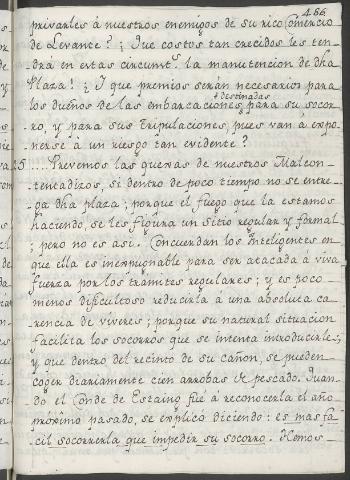 466
privarles á nuestros enemigos de su rico Comercio
de Levante? ¡Que costos tan crecidos les ten-
drá en estas circunst.s la manutencion de dha
Plaza! ¿I que premios seran necesarios para
los dueños de las embarcaciones destinadas para su socor-
ro, y para sus Tripulaciones, pues van á expo-
nerse á un riesgo tan evidente?
Prevemos las quexas de nuestros Malcon-
tentadizos, si dentro de poco tiempo no se entre-
ga dha plaza; porque el fuego que la estamos
haciendo, se les figura un Sitio regular y formal
; pero no es asi. Concuerdan los Inteligentes en
que ella es inexpugnable para ser atacada á viva
fuerza por los tramites regulares; y es poco
menos dificultoso reducirla á una absoluta ca-
rencia de viveres; porque su natural situacion
facilita los socorros que se intenta introducirle;
y que dentro del recinto de su cañon, se pueden
coger diariamente cien arrobas de pescado. Quan-
do el Conde de Estaing fué á reconocerla el año
próximo pasado, se explicó diciendo: es mas fa-
cil socorrerla que impedir su socorro. Hemos